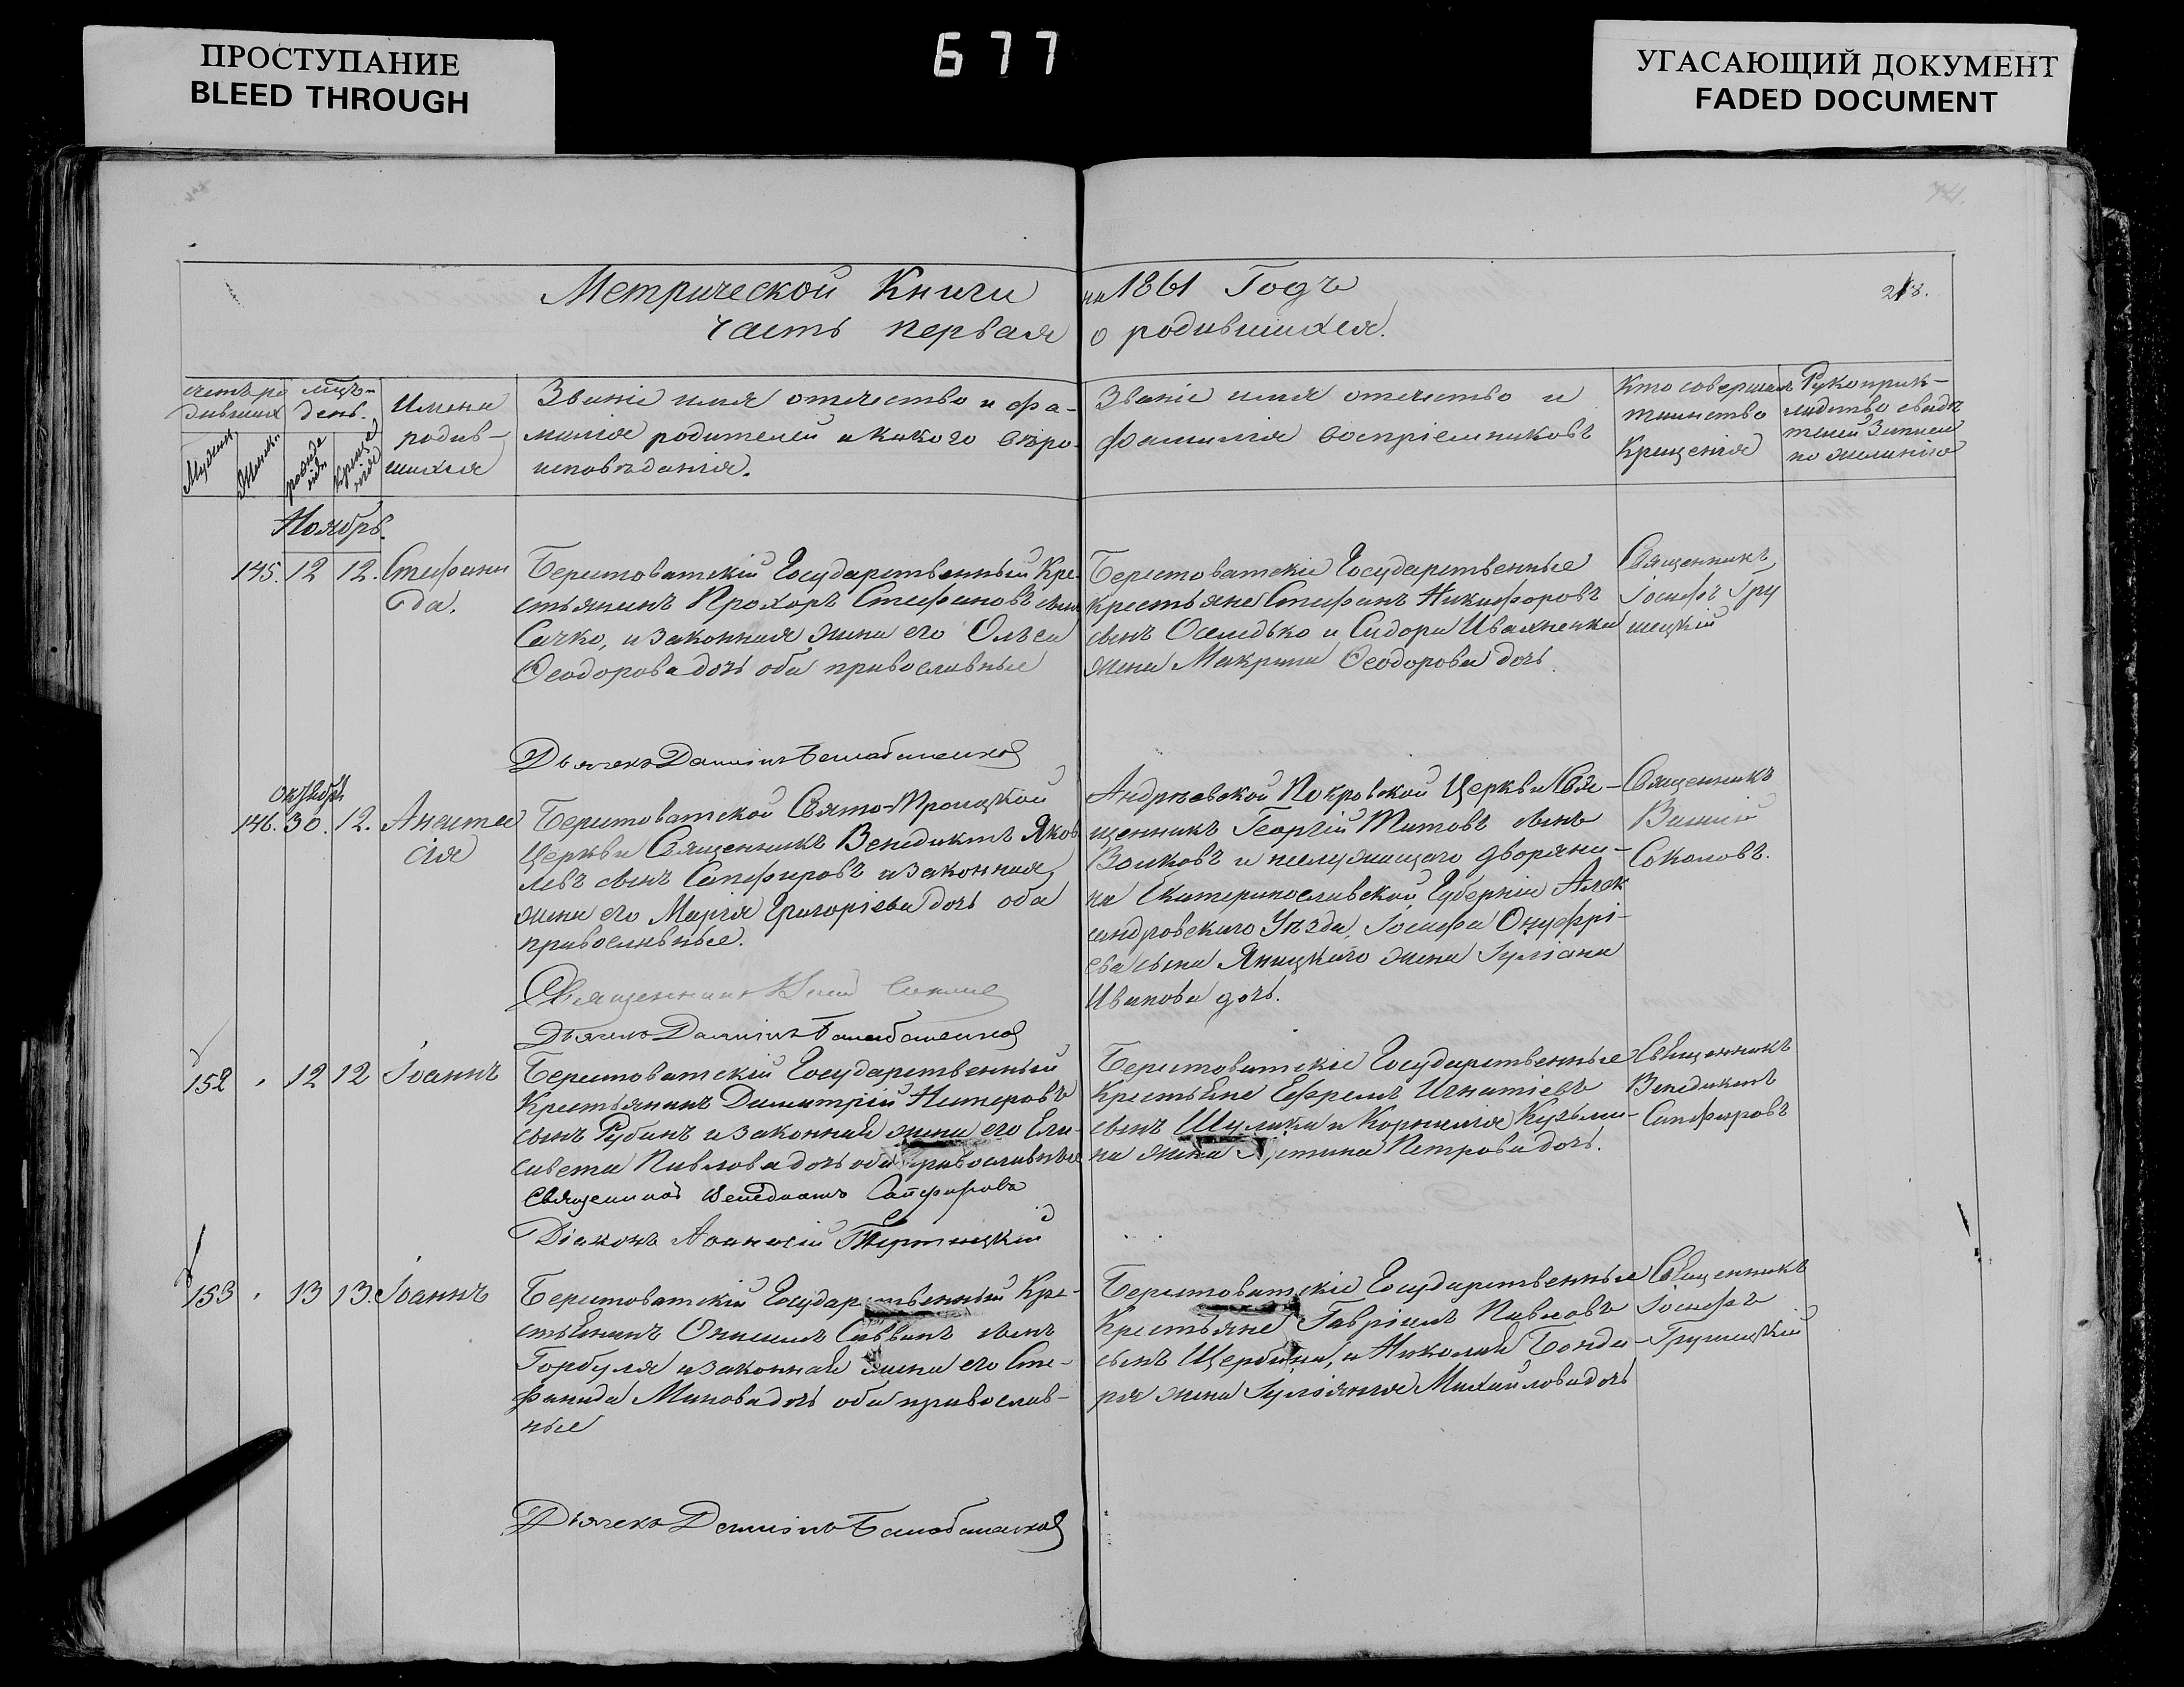 ПРОСТУПАНИЕ
BLEED THROUGH
677
УГАСАЮЩИЙ ДОКУМЕНТ
FADED DOCUMENT
74.
Метрической Книги на 1861 Годъ
часть первая о родившихся.
счетъ ро
дившихся
Мужеск.
Женск.
мцъ-
день.
рожде
нія
креще
нія
Имена
родив-
шихся
Званіе имя отечество и фа-
милія родителей и какого вѣро-
исповѣданія.
Званіе имя отечество и
фамилія воспріемниковъ
Кто совершалъ
таинство
Крещенія
Рукоприк-
ладство свидѣ
телей записи
по желанію
Ноябрь.
145. 12 12. Стефани
да.
Берестоватскій Государственный Кре-
стьянинъ Прохоръ Стефановъ сынъ
Сачко, и законная жена его Ольга
Ѳеодорова дочь оба православные
Берестоватскіе Государственные
крестьяне Стефанъ Никифоровъ
сынъ Оселедько и Сидора Ивахненка
жена Макрина Ѳеодорова дочь.
Священникъ
Іосифъ Гру
шецкій
Дьячекъ Даніилъ Балабаненко
Октябрь
146. 30. 12. Анаста
сія
Берестоватской Свято-Троицкой
Церкви Священникъ Венедиктъ Яков
левъ сынъ Сапфировъ и законная
жена его Марія Григоріева дочь оба
православные.
Андреевской Покровской Церкви Свя-
щенникъ Георгій Титовъ сынъ
Волковъ и неслужащаго дворяни-
на Екатеринославской Губерніи Алек
сандровского Уѣзда, Іосифа Онуфрі-
ева сына Яницкаго жена Іуліана
Иванова дочь.
Священникъ
Василій
Соколовъ.
Священникъ
Дьячекъ Даніилъ Балабаненко
152 " 12 12 Іоаннъ
Берестоватскій Государственный
Крестьянинъ Димитрій Нестеровъ
сынъ Рубанъ и законная жена его Ели-
савета Павлова дочь оба православные
Берестоватскіе Государственные
Крестьяне Ефремъ Игнатіевъ
сынъ Шулика и Корнилія Кузьми-
на жена Петрова дочь.
Священникъ
Венедиктъ
Сапфировъ
Священникъ Венедиктъ Сапфировъ
Діаконъ
153 " 13 13. Іоаннъ
Берестоватскій Государственный Кре-
стьянинъ Онисимъ Саввинъ сынъ
Горбуля и законная жена его Сте-
фанида Минова дочь оба православ-
ные
Берестоватскіе Государственные
Крестьяне Гавріилъ Павловъ
сынъ Щербина, и Николая Бонда-
ря жена Іуліянія Михайлова дочь
Священникъ
Іосифъ
Грушецкій
Дьячекъ Даніилъ Балабаненко